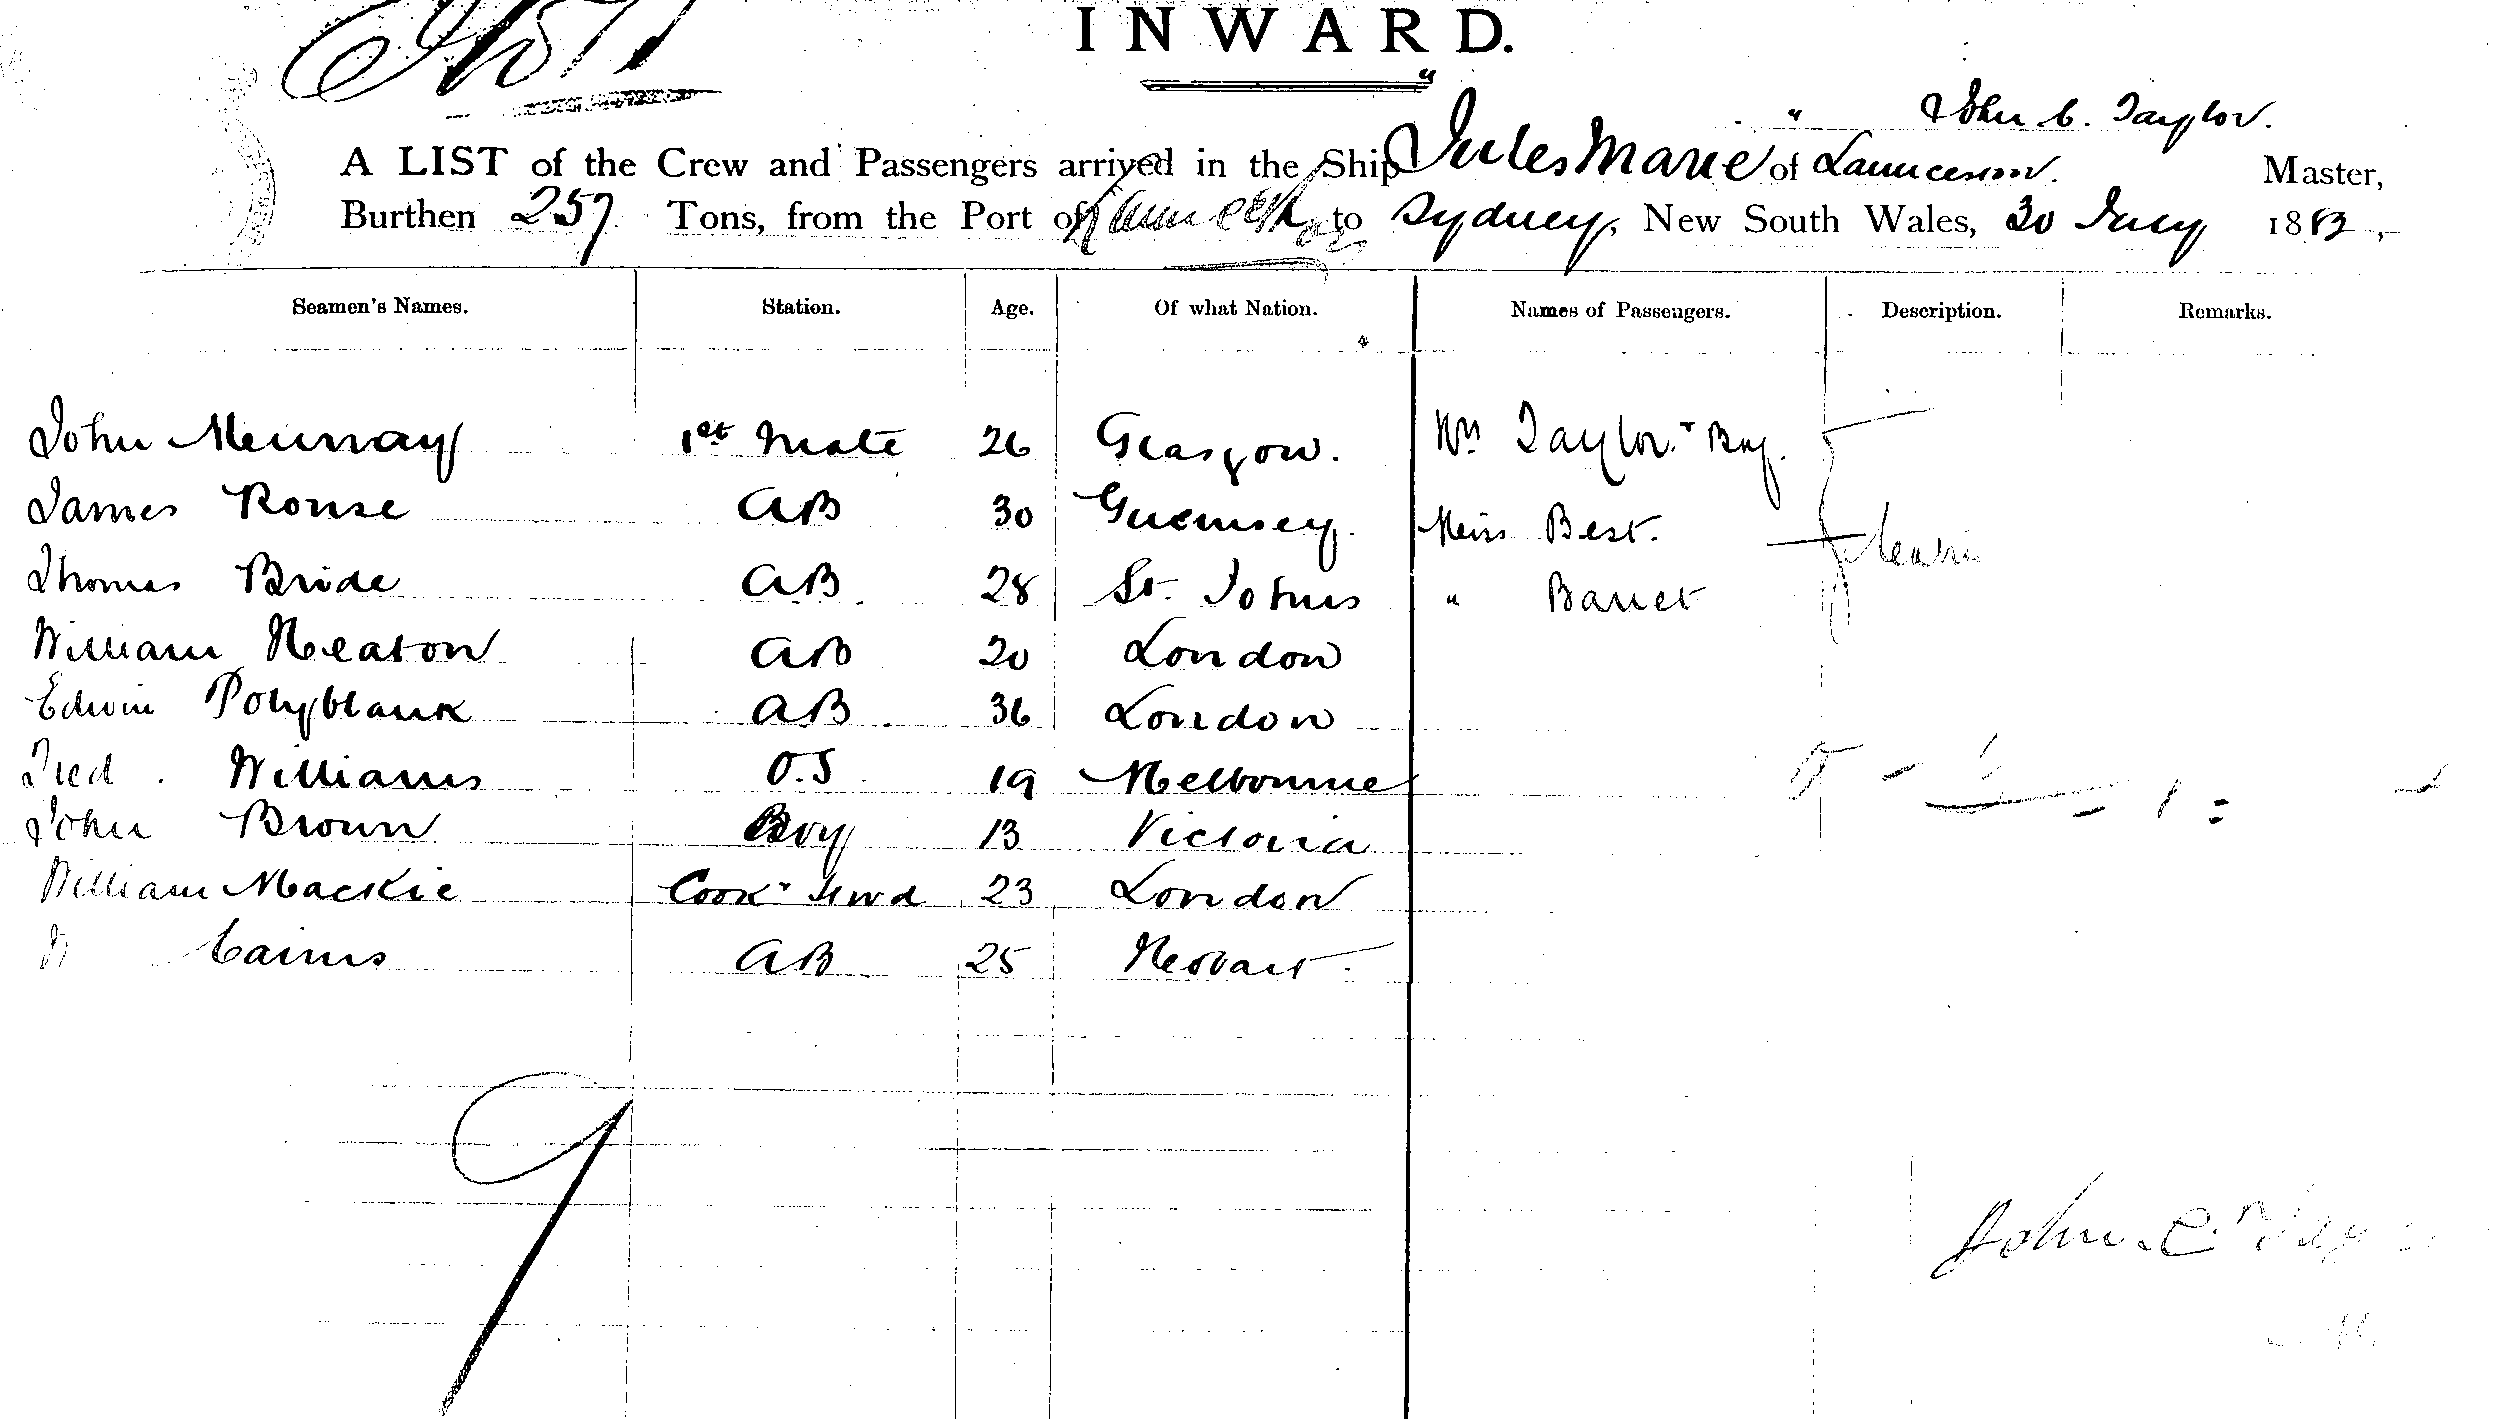 INWARD.
John C. Taylor.
A LIST of the Crew and Passengers arrived in the Ship "Jules Marie" of Launceston. Master,
Burthen 257 Tons, from the Port of to Sydney, New South Wales, 30 July 1883,
Seamen's Names. Station. Age. Of what Nation. Names of Passengers. Description. Remarks.
John Murray 1st Mate 26 Glasgow. Mrs Taylor & Boy.
James Rouse AB 30 Guernsey. Miss Best.
Thomas Bride AB 28 St. Johns " Barret
William Heaton AB 20 London
Edwin Polyblank AB 36 London
Fred. Williams O.S 19 Melbourne
John Brown Boy 13 Victoria
William Mackie Cook & Stwd 23 London
Cairns AB 25 Hobart.
9
John C. Tay